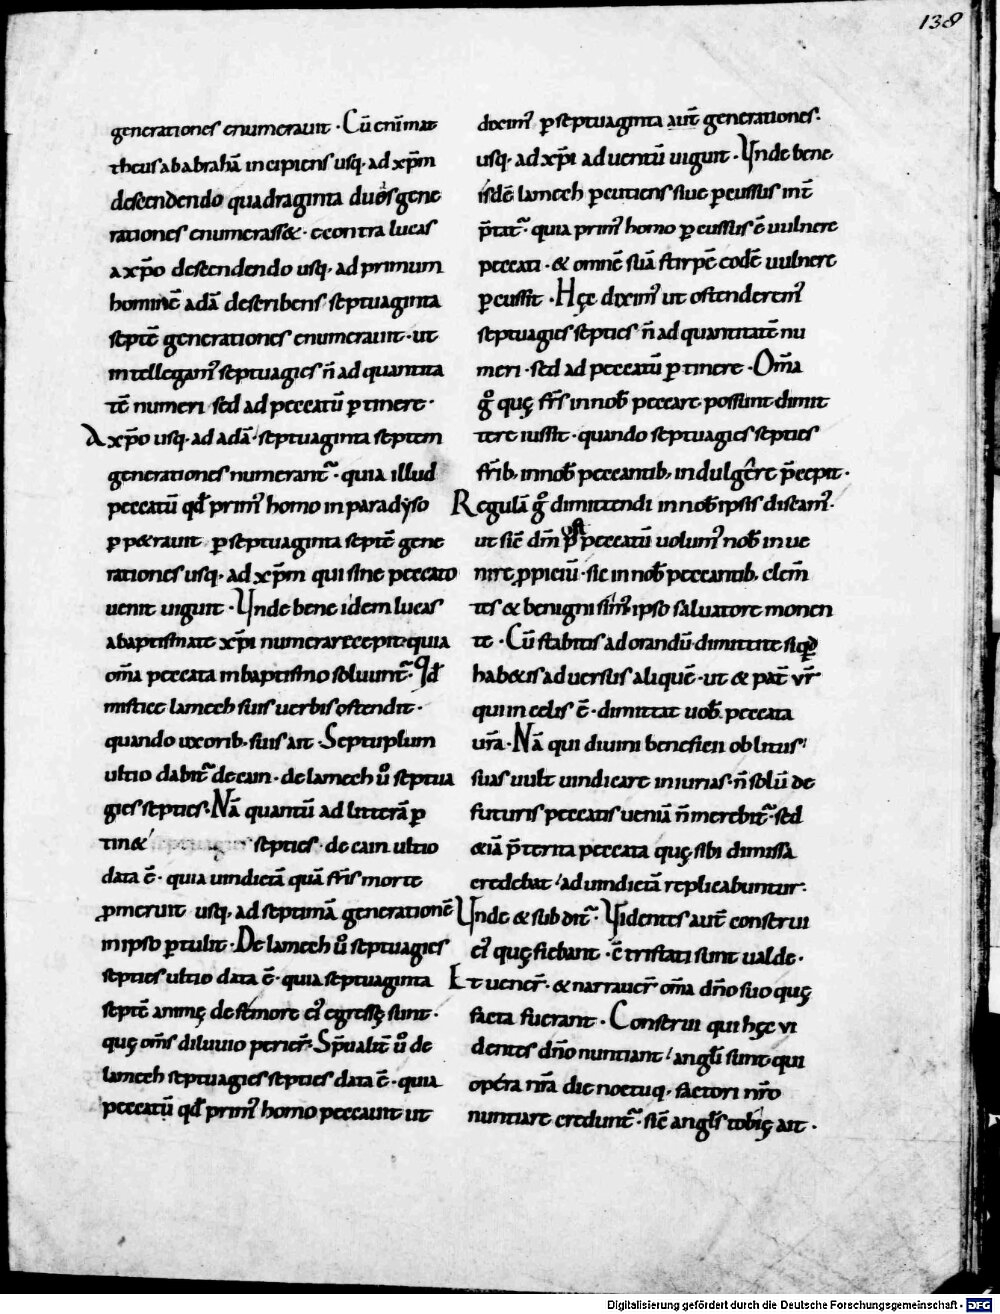 138
generationes enumerauit · Cū eni̅ mat
theus ab abrahā incipiens usq; ad xp̅m
descendendo quadraginta duos gene
rationes enumerass& · econtra lucas
a xp̅o descendendo usq; ad primum
hominē adā describens septuaginta
septē generationes enumerauit · ut
intellegam᾽ septuagies n̅ ad quantita
tē numeri sed ad peccatū ꝑtinere ·
A xp̅o usq; ad adā · septuaginta septem
generationes numerant᷑ · quia illud
peccatū qd̅ prim᾽ homo in paradẏso
ꝑp&rauit ꝑ septuaginta septē gene
rationes usq; ad xp̅m qui sine peccato
uenit uiguit · Vnde bene idem lucas
a baptismate xp̅i numerare cepit · quia
om̅a peccata in baptismo soluunt᷑ · Qd̅
mistice lamech suis uerbis ostendit ·
quando uxorib; suis ait · Septuplum
ultio dabit᷑ de cain · de lamech u̅o septua
gies septies · Nā quantū ad litterā ꝑ
tin& septies · de cain ultio
data ē · quia uindictā quā fr̅is morte
ꝓmeruit usq; ad septimā generationē
in ipso ꝑtulit · De lamech u̅o septuagies
septies ultio data ē · quia septuaginta
septē animę de femore ei᾽ egressę sunt ·
quę om̅s diluuio perier̅ · Sp̅ualit̅ u̅o de
lamech septuagies septies data ē · quia
peccatū qd̅ prim᾽ homo peccauit ut
dixim᾽ ꝑ septuaginta aut̅ generationes ·
usq; ad xp̅i aduentū uiguit · Vnde bene
isdē lamech ꝑcutiens siue ꝑcussus int̅
p̅tat᷑ · quia prim᾽ homo ꝑcussus ē uulnere
peccati · & omnē suā stirpē eodē uulnere
ꝑcussit · Hęc dixim᾽ ut ostenderem᾽
septuagies septies n̅ ad quantitatē nu
meri · sed ad peccatū ꝑtinere · Om̅a
g̊ quę fr̅s in nob̅ peccare possunt dimit
tere iussit · quando septuagies septies
fr̅ib; in nob̅ peccantib; indulgere p̅cepit ·
Regulā g̊ dimittendi in nob̅ ipsis discam᾽ ·
ut sic̅ dm̅ post peccatū uolum᾽ nob̅ inue
nire ꝓpiciū · sic in nob̅ peccantib; clem̅
tes & benigni sim᾽ ipso saluatore monen
te · Cū stabitis ad orandū · dimittite siqd̅
hab&is aduersus aliquē · ut & pat̅ vr̅
qui in celis ē · dimittat uob̅ peccata
ur̅a · Nā qui diuini beneficii oblitus
suas uult uindicare iniurias · n̅ solū de
futuris peccatis ueniā n̅ merebit᷑ · sed
&iā p̅terita peccata quę sibi dimissa
credebat ad uindictā replicabuntur ·
Vnde & subdit᷑ · Videntes aut̅ conserui
ei᾽ quę fiebant · c̅tristati sunt ualde ·
Et uener̅ · & narrauer̅ om̅a dn̅o suo quę
facta fuerant · Conserui qui hęc vi
dentes dn̅o nuntiant angl̅i sunt qui
opera nr̅a die noctuq; factori nr̅o
nuntiare credunt᷑ · sic̅ angl̅s tobię ait ·
Digitalisierung gefördert durch die Deutsche Forschungsgemeinschaft - DFG